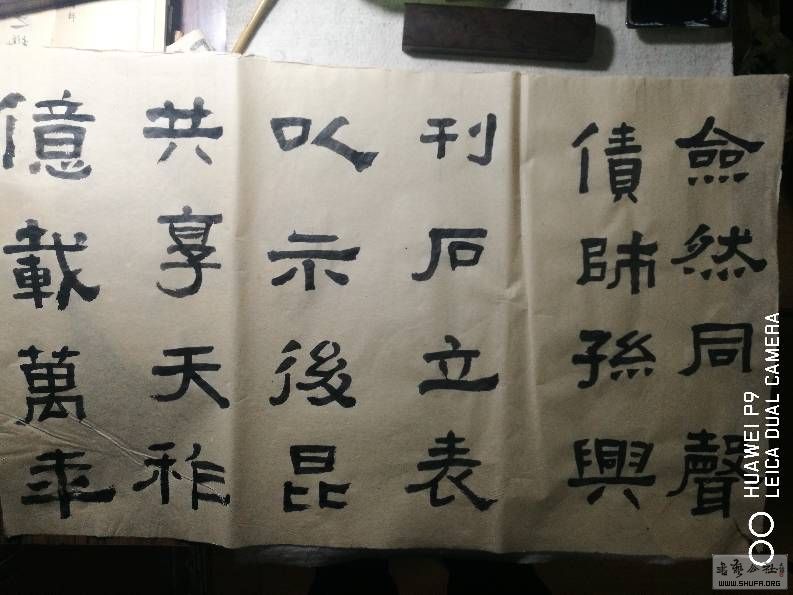 僉然同聲
債師孫興
刊石立表
以示後昆
共享天祚
億載萬年
HUAWEI P9
LEICA DUAL CAMERA
书艺公社
WWW.SHUFA.ORG